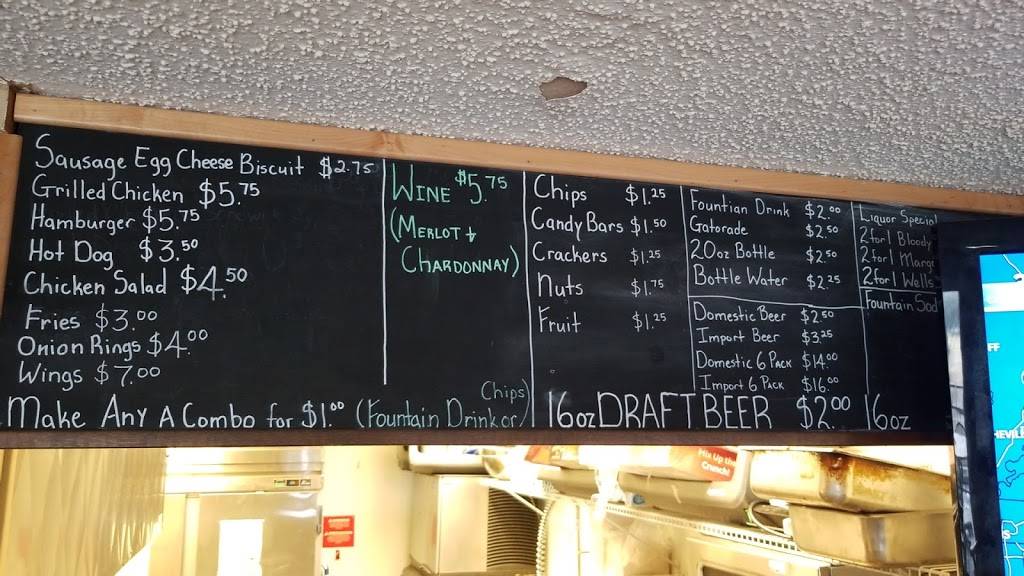 Sausage Egg Cheese Biscuit $2.75
Grilled Chicken $5.75
Hamburger $5.75
Hot Dog $3.50
Chicken Salad $4.50
Fries $3.00
Onion Rings $4.00
Wings $7.00
Make Any A Combo for $1.00 (Fountain Drink or Chips)
Wine $5.75
(Merlot +
Chardonnay)
Chips $1.25
Candy Bars $1.50
Crackers $1.25
Nuts $1.75
Fruit $1.25
Fountian Drink $2.00
Gatorade $2.50
20oz Bottle $2.50
Bottle Water $2.25
Domestic Beer $2.50
Import Beer $3.25
Domestic 6 Pack $14.00
Import 6 Pack $16.00
16oz DRAFT BEER $2.00 16oz
Liquor Special
2 for 1 Bloody
2 for 1
2 for 1 Wells
Fountain
Mix Up the
Crunch!